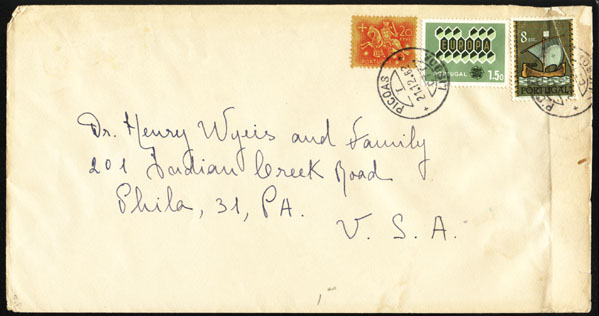 20
CTVS
PORTUGAL
EUROPA
PORTUGAL 1.50
8 esc.
PORTUGAL
PICOAS
21.12.62
Dr. Henry Wyeis and Family
201 Indian Creek Road
Phila, 31, PA.
U. S. A.